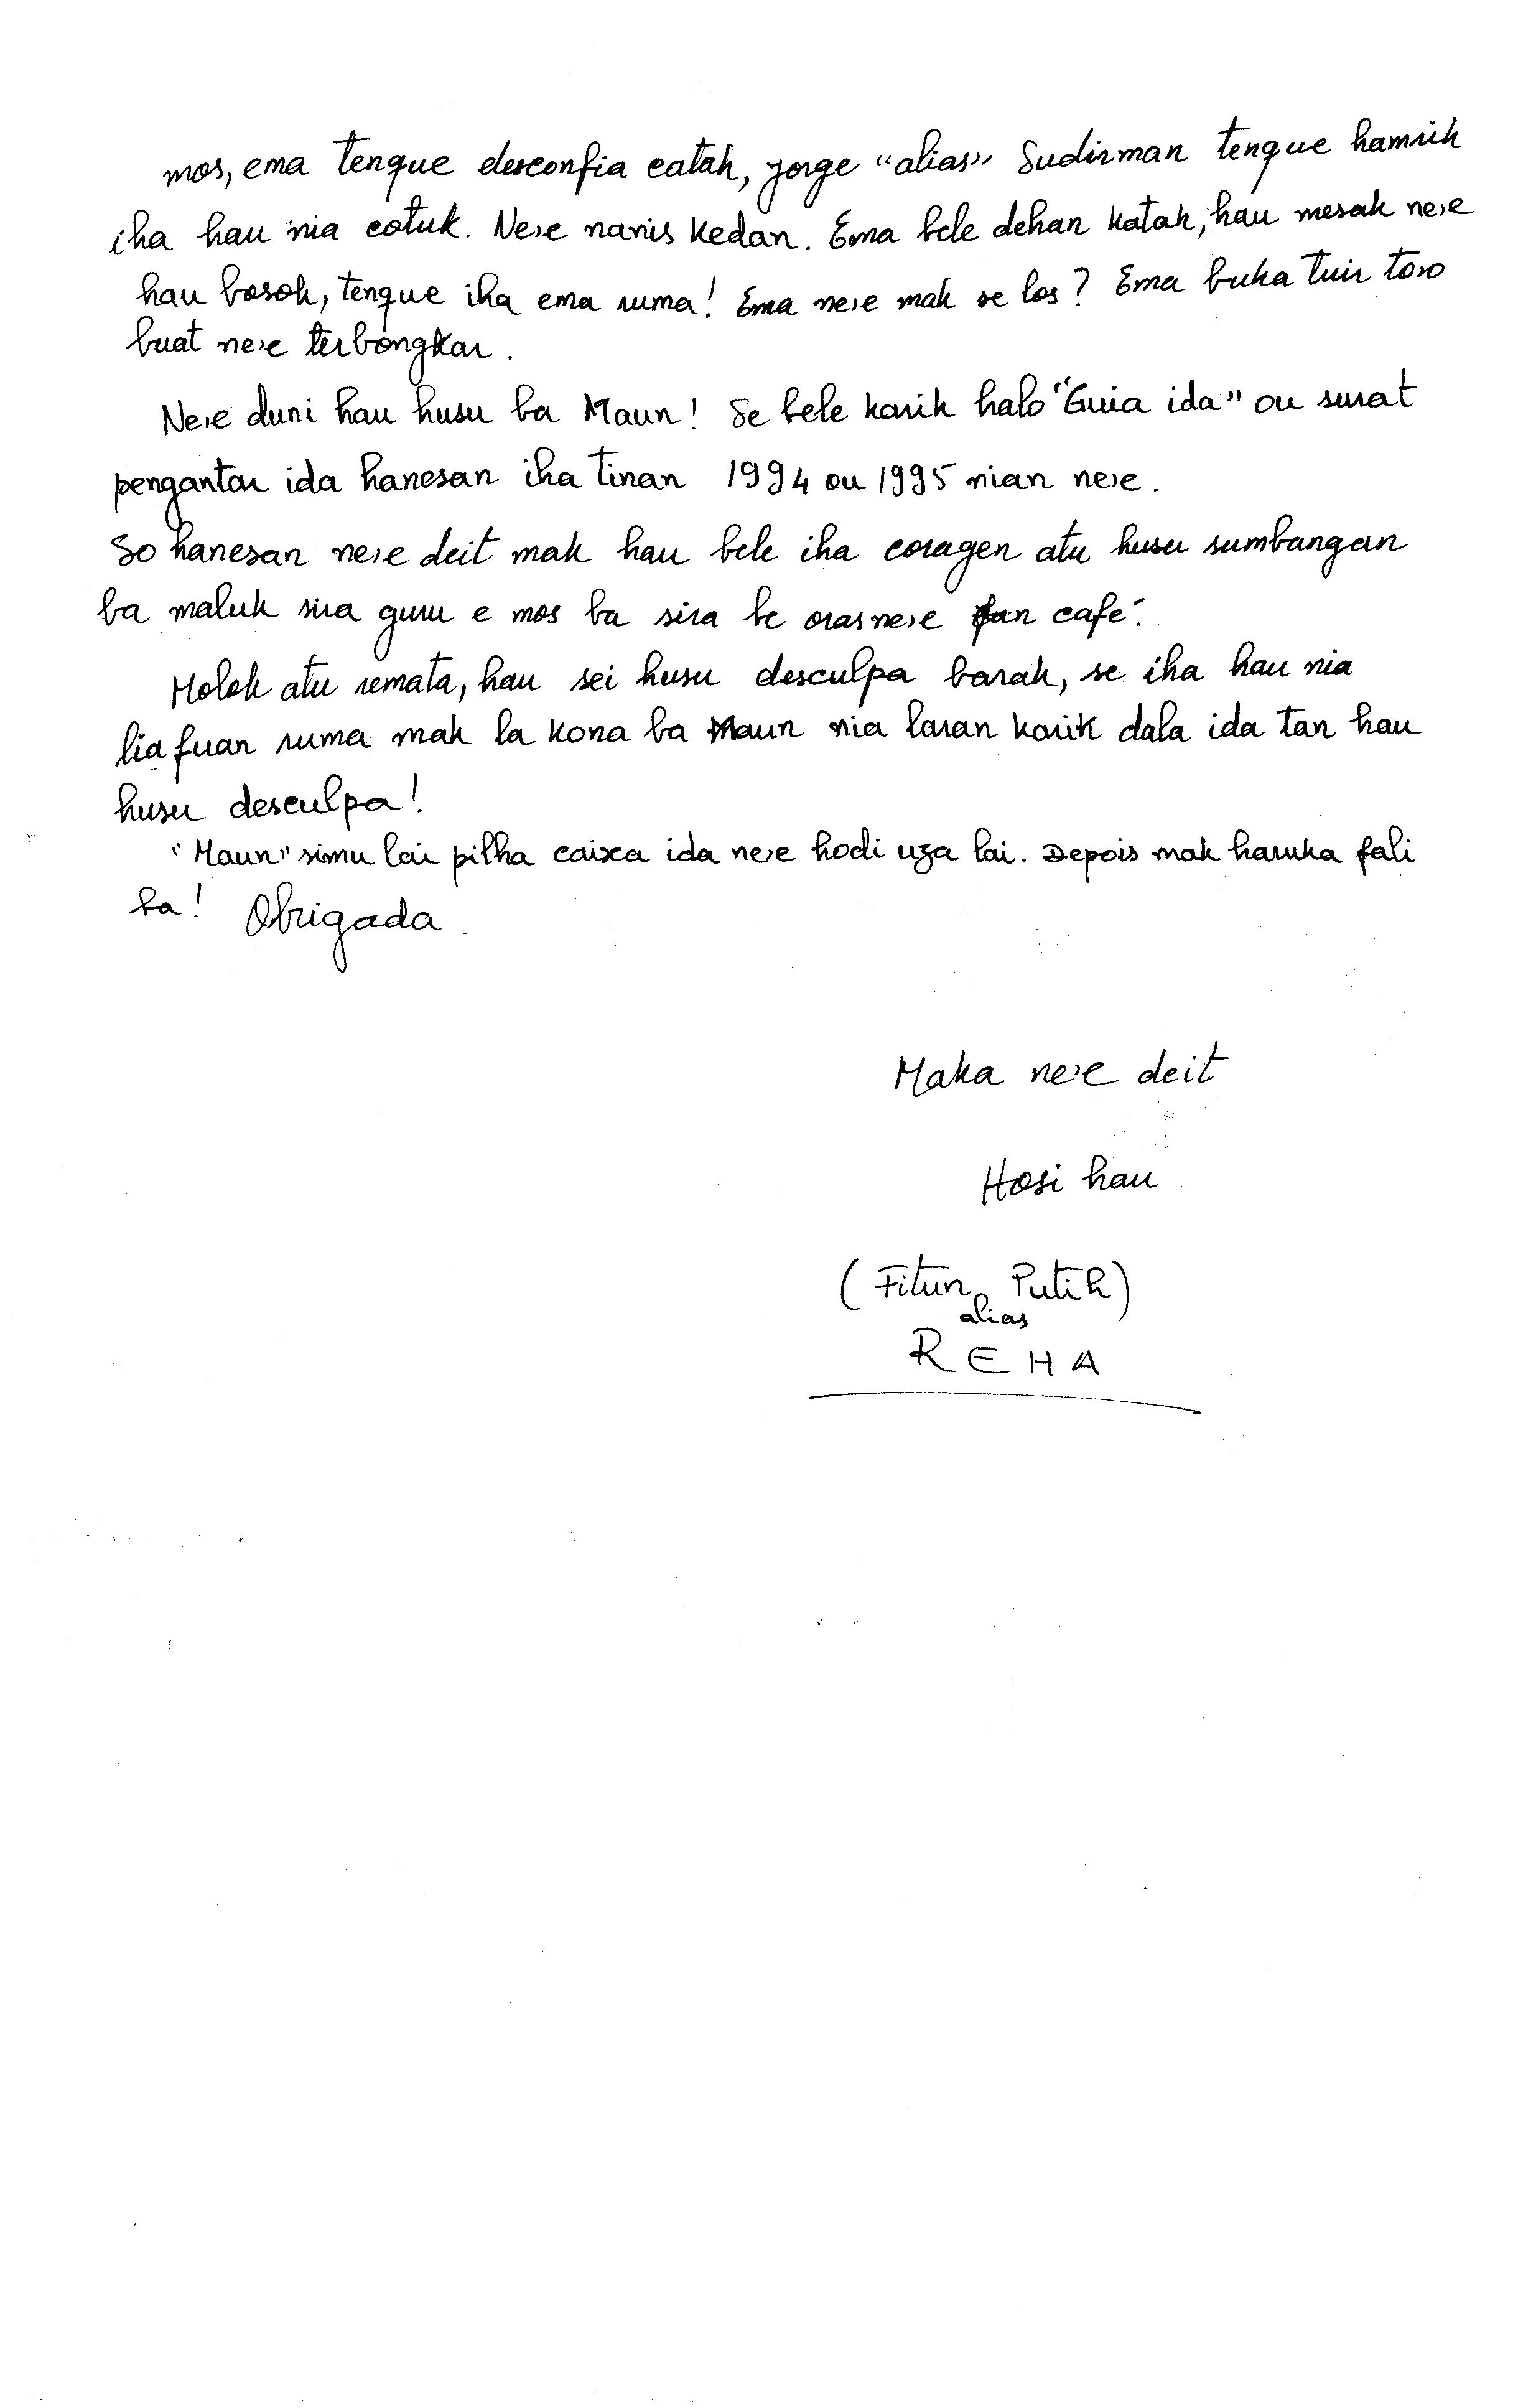 mos, ema tenque desconfia catak, Jorge "alias" Sudirman tenque hamrik
iha hau nia cotuk. Ne'e nanis kedan. Ema bele dehan katak, hau mesak ne'e
hau bosok, tenque iha ema ruma! Ema ne'e mak se los? Ema buka tuir to'o
buat ne'e terbongkar.
Ne'e duni hau husu ba Maun! Se bele karik halo "Guia ida" ou surat
pengantar ida hanesan iha tinan 1994 ou 1995 nian ne'e.
So hanesan ne'e deit mak hau bele iha coragen atu husu sumbangan
ba maluk sira guru e mos ba sira be oras ne'e fan café.
Molok atu remata, hau sei husu desculpa barak, se iha hau nia
lia fuan ruma mak la kona ba Maun nia laran karik dala ida tan hau
husu desculpa!
"Maun" simu lai pilha caixa ida ne'e hodi uza lai. Depois mak haruka fali
ba! Obrigada.
Maka ne'e deit
Hosi hau
(Fitun Putih)
alias
REHA